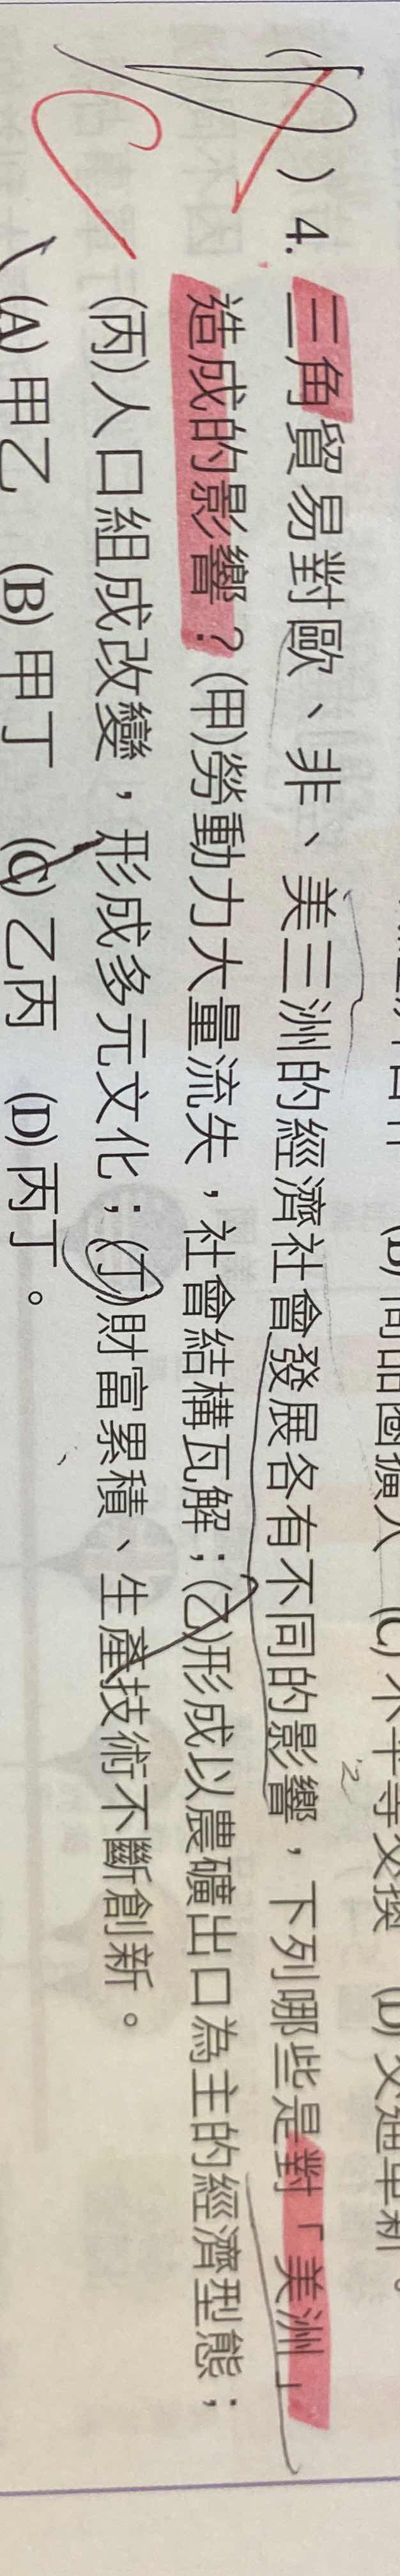 (B) 商品圈擴大 (C) 不平等交換 (D) 交通革新。
( D ) 4. 三角貿易對歐、非、美三洲的經濟社會發展各有不同的影響，下列哪些是對「美洲」
造成的影響？(甲)勞動力大量流失，社會結構瓦解；(乙)形成以農礦出口為主的經濟型態；
(丙)人口組成改變，形成多元文化；(丁)財富累積、生產技術不斷創新。
(A) 甲乙 (B) 甲丁 (C) 乙丙 (D) 丙丁。
C